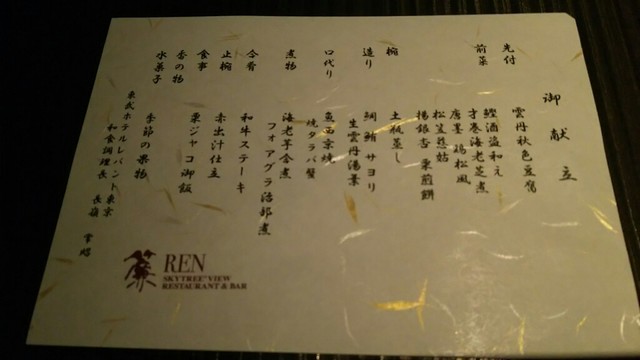 御献立
先付 雲丹秋色豆腐
前菜 鰹酒盗和え
才巻海老芝煮
唐墨 鶏松風
松笠慈姑
揚銀杏 栗煎餅
椀 土瓶蒸し
造り 鯛 鮪 サヨリ
生雲丹湯葉
口代り 魚西京焼
焼タラバ蟹
煮物 海老芋含煮
フォアグラ治部煮
合肴 和牛ステーキ
止椀 赤出汁仕立
食事 栗ジャコ御飯
香の物
水菓子 季節の果物
東武ホテルレバント東京
和食調理長 長嶺
簾 REN
SKYTREE VIEW
RESTAURANT & BAR